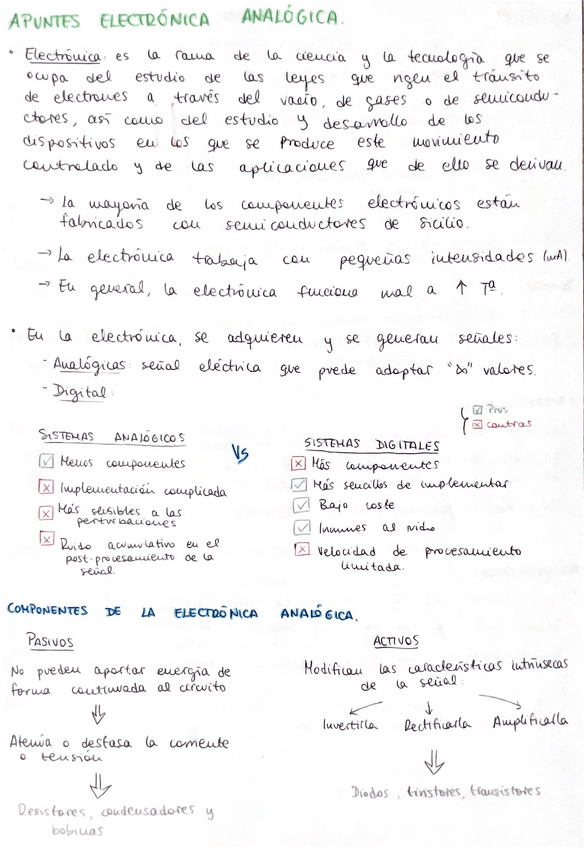 APUNTES ELECTRÓNICA ANALÓGICA.
• Electrónica: es la rama de la ciencia y la tecnología que se
ocupa del estudio de las leyes que rigen el tránsito
de electrones a través del vacío, de gases o de semicondu-
ctores, así como del estudio y desarrollo de los
dispositivos en los que se produce este movimiento
controlado y de las aplicaciones que de ello se derivan.
→ La mayoría de los componentes electrónicos están
fabricados con semiconductores de sicilio.
→ La electrónica trabaja con pequeñas intensidades (mA).
→ En general, la electrónica funciona mal a ↑ Tª.
• En la electrónica, se adquieren y se generan señales:
- Analógicas: señal eléctrica que puede adoptar "∞" valores.
- Digital:
☑ Pros
☒ contras
SISTEMAS ANALÓGICOS
☑ Menos componentes
☒ Implementación complicada
☒ Más sensibles a las
perturbaciones
☒ Ruido acumulativo en el
post-procesamiento de la
señal.
Vs
SISTEMAS DIGITALES
☒ Más componentes
☑ Más sencillos de implementar
☑ Bajo coste
☑ Inmunes al ruido
☒ Velocidad de procesamiento
limitada.
COMPONENTES DE LA ELECTRÓNICA ANALÓGICA.
PASIVOS
No pueden aportar energía de
forma continuada al circuito
⇓
Atenúa o desfasa la corriente
o tensión
⇓
Resistores, condensadores y
bobinas
ACTIVOS
Modifican las características intrínsecas
de la señal:
Invertirla Rectificarla Amplificarla
⇓
Diodos, tiristores, transistores